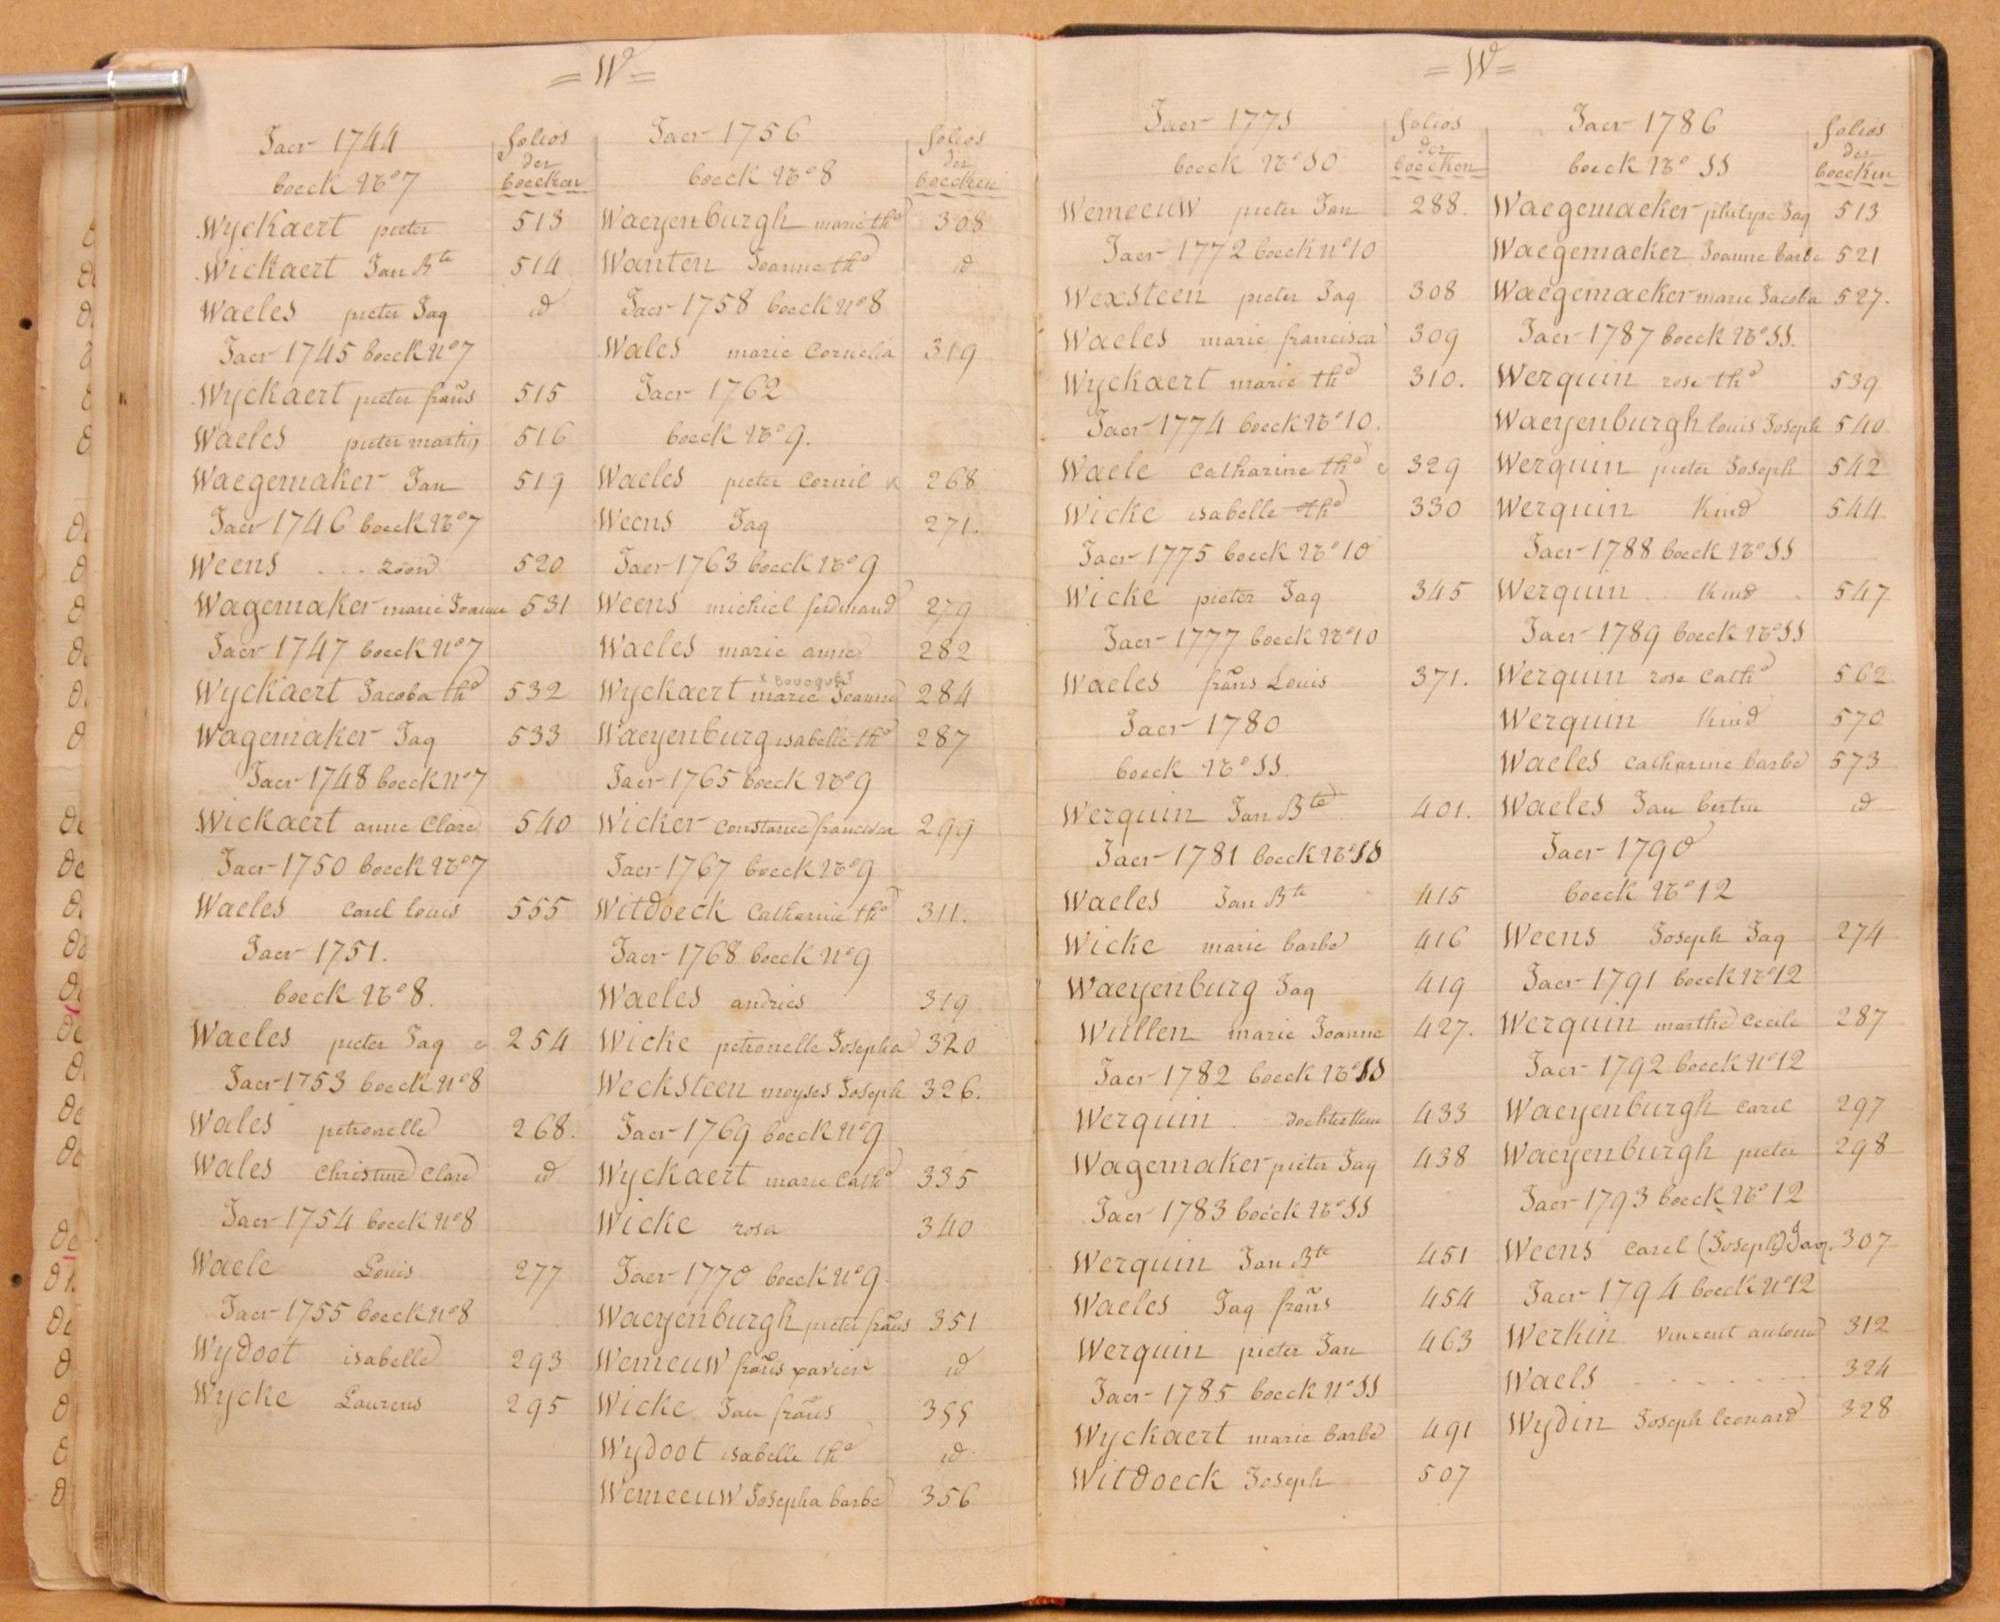 = W =
Jaer 1744
boeck No 7
folios
der
boecken
Wyckaert pieter 513
Wickaert Jan Bte 514
Waeles pieter Jaq id
Jaer 1745 boeck No 7
Wyckaert pieter frans 515
Waeles pieter martin 516
Waegemaker Jan 519
Jaer 1746 boeck No 7
Weens ... zoon 520
Wagemaker marie Joanne 531
Jaer 1747 boeck No 7
Wyckaert Jacoba the 532
Wagemaker Jaq 533
Jaer 1748 boeck No 7
Wickaert anne Clare 540
Jaer 1750 boeck No 7
Waeles Carel louis 555
Jaer 1751.
boeck No 8.
Waeles pieter Jaq 254
Jaer 1753 boeck No 8
Wales petronelle 268.
Wales Christine Clare id
Jaer 1754 boeck No 8
Waele Louis 277
Jaer 1755 boeck No 8
Wydoot isabelle 293
Wycke Laurens 295
Jaer 1756
boeck No 8
folios
der
boecken
Waeyenburgh marie the 308
Wanten Joanne the id
Jaer 1758 boeck No 8
Wales marie Cornelia 319
Jaer 1762
boeck No 9.
Waeles pieter Cornil 268
Weens Jaq 271.
Jaer 1763 boeck No 9
Weens michiel ferdinand 279
Waeles marie anne 282
Wyckaert marie Joanne 284
Waeyenburg isabelle the 287
Jaer 1765 boeck No 9
Wicker Constance francisca 299
Jaer 1767 boeck No 9
Witdoeck Catharine the 311.
Jaer 1768 boeck No 9
Waeles andries 319
Wicke petronelle Josepha 320
Wecksteen moyses Joseph 326.
Jaer 1769 boeck No 9
Wyckaert marie Cathe 335
Wicke rosa 340
Jaer 1770 boeck No 9.
Waeyenburgh pieter frans 351
Wemeeuw frans xavier id
Wicke Jan frans 355
Wydoot isabelle the id
Wemeeuw Josepha barbe 356
= W =
Jaer 1771
boeck No 10
folios
der
boecken
Wemeeuw pieter Jan 288.
Jaer 1772 boeck No 10
Wexsteen pieter Jaq 308
Waeles marie francisca 309
Wyckaert marie the 310.
Jaer 1774 boeck No 10.
Waele Catharine the 329
Wicke isabelle the 330
Jaer 1775 boeck No 10
Wicke pieter Jaq 345
Jaer 1777 boeck No 10
Waeles frans Louis 371.
Jaer 1780
boeck No 11.
Werquin Jan Bte 401.
Jaer 1781 boeck No 11
Waeles Jan Bte 415
Wicke marie barbe 416
Waeyenburg Jaq 419
Wullen marie Joanne 427.
Jaer 1782 boeck No 11
Werquin . dochterken 433
Wagemaker pieter Jaq 438
Jaer 1783 boeck No 11
Werquin Jan Bte 451
Waeles Jaq frans 454
Werquin pieter Jan 463
Jaer 1785 boeck No 11
Wyckaert marie barbe 491
Witdoeck Joseph 507
Jaer 1786
boeck No 11
folios
der
boecken
Waegemaeker philype Jaq 513
Waegemaeker Joanne barbe 521
Waegemaeker marie Jacoba 527.
Jaer 1787 boeck No 11.
Werquin rose the 539
Waeyenburgh louis Joseph 540
Werquin pieter Joseph 542
Werquin Kind 544
Jaer 1788 boeck No 11
Werquin .. Kind . 547
Jaer 1789 boeck No 11
Werquin rose Cathe 562
Werquin Kind 570
Waeles Catharine barbe 573
Waeles Jan id
Jaer 1790
boeck No 12
Weens Joseph Jaq 274
Jaer 1791 boeck No 12
Werquin marthe Cecile 287
Jaer 1792 boeck No 12
Waeyenburgh Carel 297
Waeyenburgh pieter 298
Jaer 1793 boeck No 12
Weens Carel (Joseph) Jaq. 307
Jaer 1794 boeck No 12
Werkin Vincent antone 312
Waels ....... 324
Wydin Joseph leonard 328